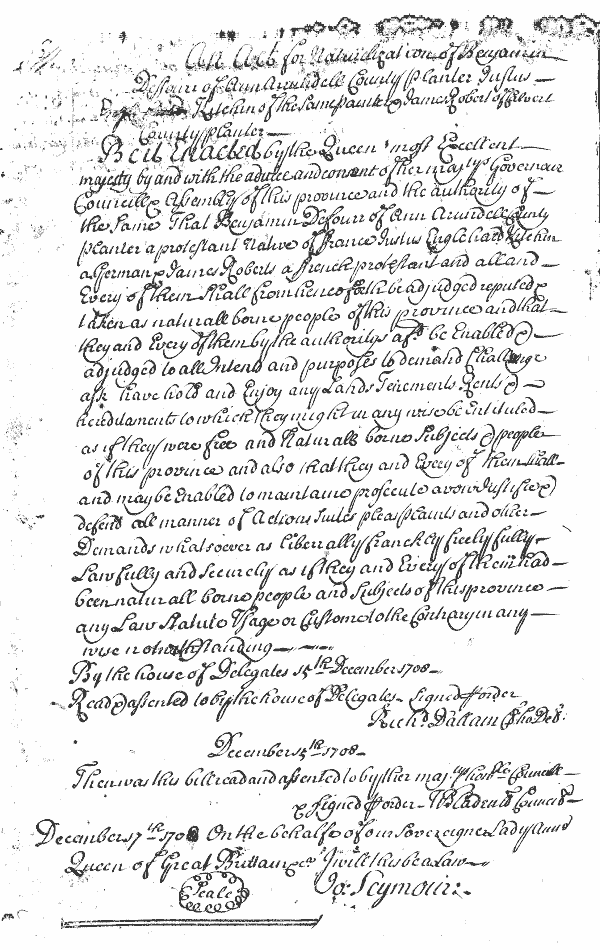 An Act for Naturelization of Benjamin
Defour of Ann Arundell County Planter Justus
Kitchin of the same place & James Robert of Calvert
County planter
Be it Enacted by the Queen's most Excellent
majesty by and with the advice and consent of her maj'tys Governour
Councill & Assembly of this province and the authority of
the same That Benjamin Defour of Ann Arundell County
Planter a protestant Native of France Justus Englehard Kitchin
a German & James Roberts a french protestant and all and
Every of them Shall from henceforth be adjudged reputed &
taken as naturall borne people of this province and that
they and Every of them by the authority afs'd be Enabled &
adjudged to all Intents and purposes to demand Challenge
ask have hold and Enjoy any Lands Tenements Rents &
hereditaments to which they might in any wise be Intituled
as if they were free and Naturall borne Subjects & people
of this province and also that they and Every of them shall
and may be Enabled to maintaine prosecute avow Justifie &
defend all manner of Actions Suites pleas plaints and other
Demands whatsoever as liberally franckly freely fully
Lawfully and Securely as if they and Every of them had
been naturall borne people and Subjects of this province
any Law Statute Usage or Custome to the Contrary in any
wise notwithstanding
By the house of Delegates 15th December 1708
Read & assented to by the house of Delegates Signed p order
Rich'd Dallam Cl ho Del:
December 15th 1708
Then was this bill read and assented to by her maj'tys hon'ble Councill
& signed p order W Bladen Cl Council
December 17th 1708 On the behalfe of our Sovereigne Lady Anne
Queen of Great Brittain &c I will this be a Law
Seale
Jo: Seymour: